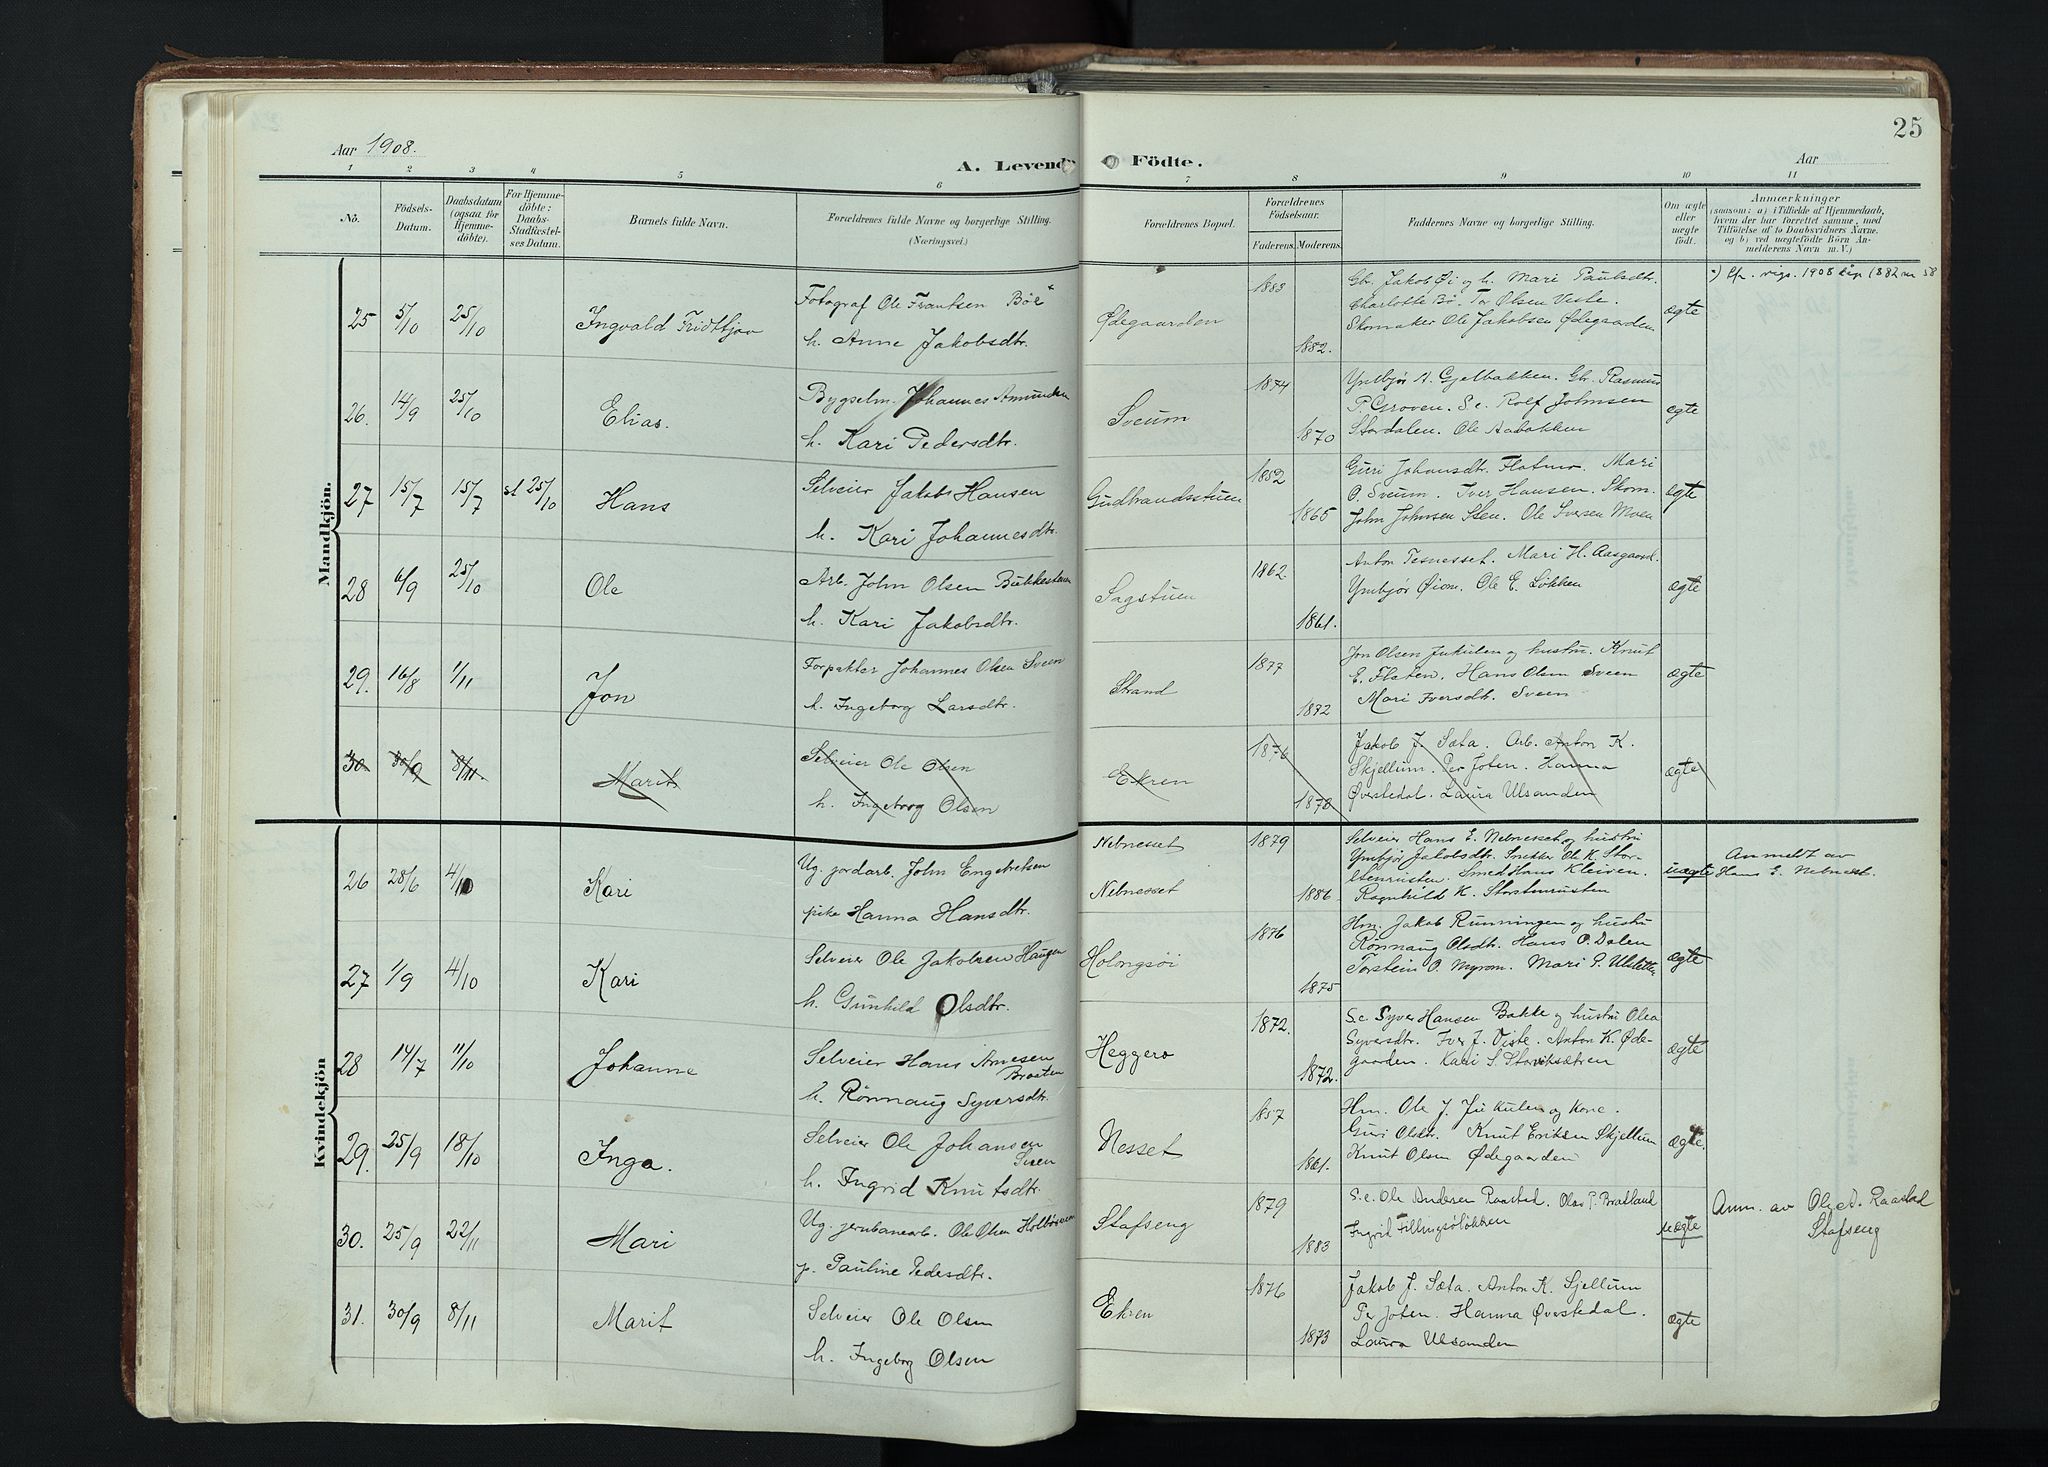 Aar 1908.
A. Levende Födte.
Aar
25
1 2 3 4 5 6 7 8 9 10 11
No.
Födsels-Datum.
Daabsdatum (ogsaa for Hjemme-döbte).
For Hjemme-döbte: Daabs-Stadfæstel-ses Datum.
Barnets fulde Navn.
Forældrenes fulde Navne og borgerlige Stilling. (Næringsvei.)
Forældrenes Bopæl.
Forældrenes Födselsaar.
Faderens. Moderens.
Faddernes Navne og borgerlige Stilling.
Om ægte eller uægte födt.
Anmærkninger
(saasom: a) i Tilfælde af Hjemmedaab,
hvem der har forrettet samme, med
Tilföielse af to Daabsvidners Navne,
og b) ved uægtefödte Börn An-
melderens Navn m. V.)
Mandkjön.
25 5/10 25/10 Ingvald Fridttjov
Fotograf Ole Frantsen Böe
h. Anne Jakobsdtr.
Ødegaarden 1883 1882.
Gbr. Jakob Øi og h. Mari Paulsdtr.
Charlotte Bö. Tor Olsen Viste.
Skomaker Ole Jakobsen Ødegaarden
ægte
1908
26. 14/9 25/10 Elias.
Bygselm. Johannes Amundsen
h. Kari Pedersdtr.
Sveum 1874 1870
Ymbjør A. Gjelbakken. Gbr. Rasmus
P. Groven. S.e. Rolf Johnsen
Stordalen. Ole Aabakken
ægte
27 15/7 15/7 st 25/10 Hans
Selveier Jakob Hansen
h. Kari Johannesdtr.
Gudbrandsstuen 1852 1865
Guri Johansdtr. Flatmo. Mari
O. Sveum. Iver Hansen. Skom.
John Johnsen Sten. Ole Iversen Moen
ægte
28 6/9 25/10 Ole
Arb. John Olsen
h. Kari Jakobsdtr.
Sagstuen 1862. 1861.
Anton Tesnesset. Mari H. Aasgaard.
Ymbjør Øien. Ole E. Løkken
ægte
29. 16/8 1/11 Jon
Forpakter Johannes Olsen Sveen
h. Ingeborg Larsdtr.
Strand 1877
Jon Olsen Jukulen og hustru. Knut
E. Flaten. Hans Olsen Sveen
Mari Iversdtr. Sveen
ægte
30 30/9 8/11. Marit
Selveier Ole Olsen
h. Ingeborg Olsen
Ekren 1876
Jakob J. Sæta. Arb. Anton K.
Skjellum. Per Joten. Hanna
Øverstedal. Laura Ulsanden
ægte
Kvindekjön
26 28/6 4/10 Kari
Ug. jordarb. John Engebretsen
pike Hanna Hansdtr.
Nebnesset
Nebnesset
1879 1886.
Selveier Hans E. Nebnesset og hustru
Ymbjør Jakobsdtr. Snekker Ole K. Stor-
stenrusten. Smed Hans Kleiven.
Ragnhild K. Storstenrusten
uægte
Anmeldt av
Hans E. Nebnesset.
27 1/9 4/10 Kari
Selveier Ole Jakobsen Haugen
h. Gunhild Olsdtr.
Holongsøi 1876 1875
Hm. Jakob Runningen og hustru
Rønnaug Olsdtr. Hans O. Dalen
Torstein O. Myrom. Mari P.
ægte
28 14/7 11/10 Johanne
Selveier Hans Arnesen
Braaten
h. Rønnaug Syversdtr.
Heggerø 1872. 1872.
S.e. Syver Hansen Bakke og hustru Olea
Syversdtr. Iver J. Viste. Anton K. Øde-
gaarden. Kari S. Storviksætren
ægte
29. 25/9 18/10 Inga.
Selveier Ole Johansen
Sveen
h. Ingrid Knutsdtr.
Nesset 1857 1861.
Hm. Ole J. Jukulen og Kone.
Guri Olsdtr. Knut Eriksen Skjellum
Knut Olsen Ødegaarden
ægte.
30. 25/9 22/11 Mari
Ug. jernbanearb. Ole Olsen
p. Pauline Pedersdtr.
Stafseng 1879 1883
S.e. Ole Andersen Raastad. Olav P. Bratland
Ingrid Fillingsøløkken
uægte
Anm. av Ole A. Raastad
Stafseng
31. 30/9 8/11 Marit
Selveier Ole Olsen
h. Ingeborg Olsen
Ekren 1876 1873
Jakob J. Sæta. Anton K. Sjellum
Per Joten. Hanna Øverstedal.
Laura Ulsanden
ægte